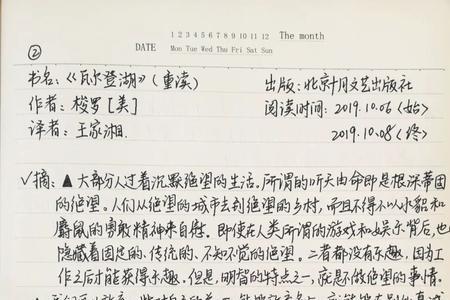 1 2 3 4 5 6 7 8 9 10 11 12 The month
DATE Mon Tue Wed Thu Fri Sat Sun
②
书名:《瓦尔登湖》(重读) 出版:北京十月文艺出版社
作者:梭罗[美] 阅读时间:2019.10.06(始)
译者:王家湘. 2019.10.08(终)
✓摘:▲大部分人过着沉默绝望的生活。所谓的听天由命即是根深蒂固
的绝望。人们从绝望的城市去到绝望的乡村,而且不得不以水貂和
麝鼠的勇敢精神来自慰。即使在人类所谓的游戏和娱乐背后,也
隐藏着固定的、传统的、不知不觉的绝望。二者都没有乐趣,因为工
作之后才能获得乐趣。但是,明智的特点之一,就是不做绝望的事情。